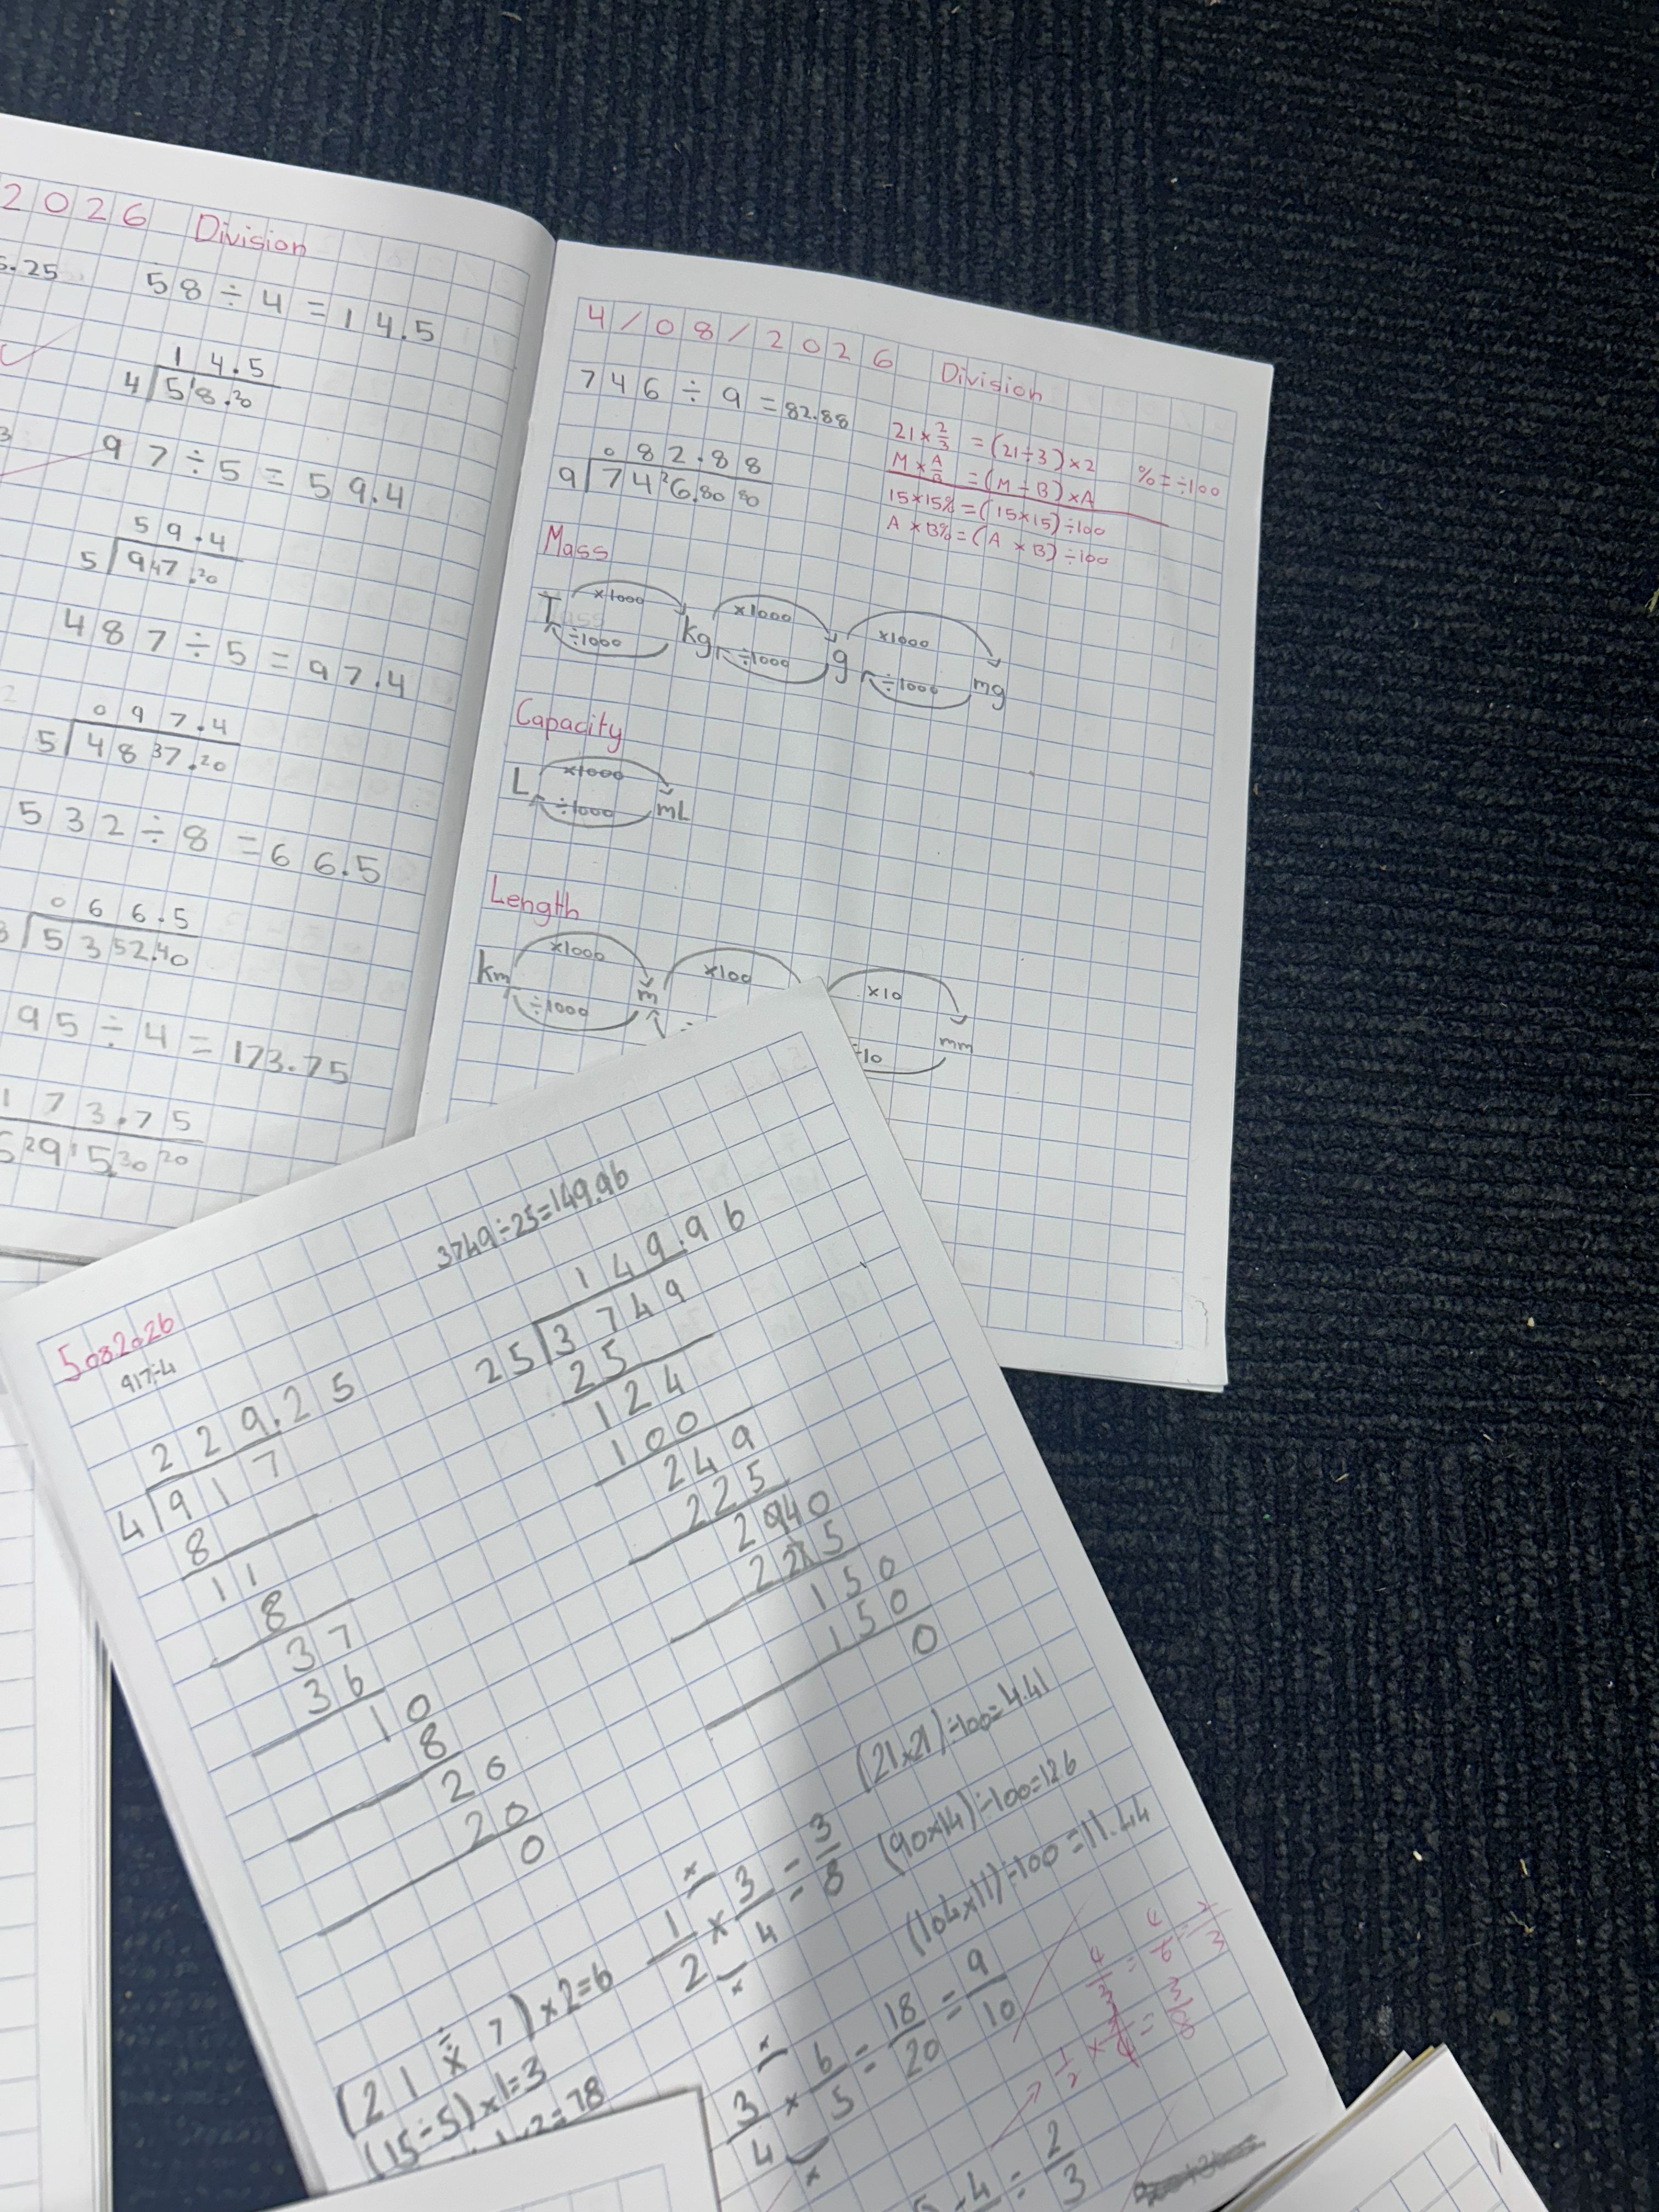 2026 Division
5.25
58÷4=14.5
14.5
4 58.20
97÷5=59.4
59.4
5 947.20
487÷5=97.4
097.4
5 4837.20
532÷8=66.5
066.5
5352.40
95÷4=173.75
173.75
2915.30 20
4/08/2026 Division
746÷9=82.88
082.88
9 7426.80 80
21×2/3=(21÷3)×2
M×A/B=(M÷B)×A
%=÷100
15×15%=(15×15)÷100
A×B%=(A×B)÷100
Mass
T ×1000 kg ×1000 g ×1000 mg
÷1000 ÷1000 ÷1000
Capacity
L ×1000 mL
÷1000
Length
km ×1000 m ×100 ×10 mm
÷1000 ÷10
5082026
917÷4
229.25
4 917
8
11
8
37
36
10
8
20
20
0
3749÷25=149.96
149.96
25 3749
25
124
100
249
225
240
225
150
150
0
(21÷7)×2=6
(15÷5)×1=3
2=78
1/2×3/4=3/8
3/4×6/5=18/20=9/10
4=2/3
(21×21)÷100=4.41
(90×14)÷100=126
(104×11)÷100=11.44